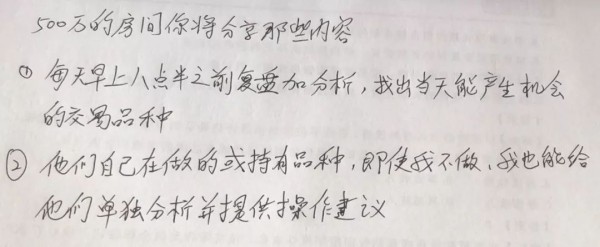 500万的房间你将分享那些内容
① 每天早上八点半之前复盘加分析，找出当天能产生机会
的交易品种
② 他们自己在做的或持有品种，即使我不做、我也能给
他们单独分析并提供操作建议